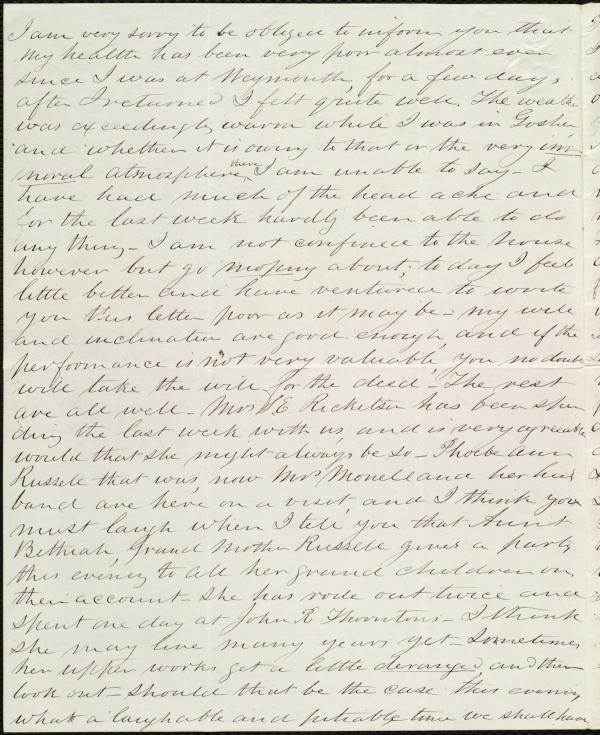 I am very sorry to be obliged to inform you that
my health has been very poor almost ever
since I was at Weymouth, for a few days
after I returned I felt quite well. The weather
was exceedingly warm while I was in Goshen
and whether it is owing to that or the very im
moral atmosphere there, I am unable to say - I
have had much of the head ache and
for the last week hardly been able to do
any thing - I am not confined to the house
however but go moping about; to day I feel
little better and have ventured to write
you this letter poor as it may be - my will
and inclination are good enough, and if the
performance is not very valuable, you no doubt
will take the will for the deed - The rest
are all well - Mrs E Ricketson has been spen
ding the last week with us, and is very agreeable
would that she might always be so - Phoebe Ann
Russell that was, now Mrs Monell and her hus
band are here on a visit, and I think you
must laugh when I tell you that Aunt
Bethiah, Grand Mother Russell gives a party
this evening to all her grand children on
their account - she has rode out twice and
spent one day at John R Thorntons - I think
she may live many years yet - Sometimes
her upper works get a little deranged and then
look out - should that be the case this evening
what a laughable and pitiable time we shall have